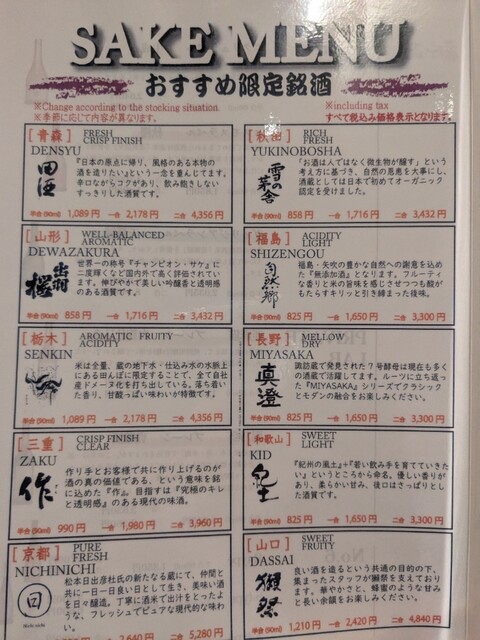 SAKE MENU
おすすめ限定銘酒
※Change according to the stocking situation.
※季節に応じて内容が異なります。
※including tax
すべて税込み価格表示となります。
[青森]
FRESH
CRISP FINISH
DENSYU
田酒
『日本の原点に帰り、風格のある本物の
酒を造りたい』という一念を重んじました。
辛口ながらコクがあり、飲み飽きしない
すっきりした酒質です。
半合(90ml) 1,089円 一合 2,178円 二合 4,356円
[秋田]
RICH
FRESH
YUKINOBOSHA
雪の茅舎
「お酒は人ではなく微生物が醸す」という
考え方に基づき、自然の恩恵を大事にし、
酒蔵としては日本で初めてオーガニック
認定を受けました。
半合(90ml) 858円 一合 1,716円 二合 3,432円
[山形]
WELL-BALANCED
AROMATIC
DEWAZAKURA
出羽桜
世界一の称号『チャンピオン・サケ』に
二度輝くなど国内外で高く評価されていま
す。伸びやかで美しい吟醸香と透明感
のある酒質です。
半合(90ml) 858円 一合 1,716円 二合 3,432円
[福島]
ACIDITY
LIGHT
SHIZENGOU
自然郷
福島・矢吹の豊かな自然への謝意を込め
た『無添加酒』となります。フルーティ
な香りと米の旨味を感じさせつつも酸が
もたらすキリッと引き締まった後味。
半合(90ml) 825円 一合 1,650円 二合 3,300円
[栃木]
AROMATIC FRUITY
ACIDITY
SENKIN
米は全量、蔵の地下水・仕込み水の水脈上
にある田んぼに限定することで、全て自社
産ドメーヌ化を打ち出している。落ち着い
た香り、甘酸っぱい味わいが特徴です。
半合(90ml) 1,089円 一合 2,178円 二合 4,356円
[長野]
MELLOW
DRY
MIYASAKA
真澄
諏訪蔵で発見された7号酵母は現在も多く
の酒蔵で活躍してます。ルーツに立ち返っ
た『MIYASAKA』シリーズでクラシック
とモダンの融合をお楽しみください。
半合(90ml) 825円 一合 1,650円 二合 3,300円
[三重]
CRISP FINISH
CLEAR
ZAKU
作
作り手とお客様で共に作り上げるのが
酒の真の価値である、という意味を銘
に込めた『作』。目指すは『究極のキレ
と透明感』のある現代の味酒。
半合(90ml) 990円 一合 1,980円 二合 3,960円
[和歌山]
SWEET
LIGHT
KID
紀土
『紀州の風土』+『若い飲み手を育てていきた
い』というところから命名。優しい香りが
あり、柔らかい甘み、後口はさっぱりとし
た酒質です。
半合(90ml) 825円 一合 1,650円 二合 3,300円
[京都]
PURE
FRESH
NICHINICHI
日
Nichi nichi
松本日出彦杜氏の新たなる蔵にて、仲間と
共に一日一日良い日として生き、美味い酒
を日々醸造。丁寧に酒米で出汁をとったよ
うな、フレッシュでピュアな現代的な味わ
い。
2,640円 二合 5,280円
[山口]
SWEET
FRUITY
DASSAI
獺祭
良い酒を造るという共通の目的の下、
集まったスタッフが獺祭を支えており
ます。華やかさと、蜂蜜のような甘み
と長い余韻をお楽しみください。
半合(90ml) 1,210円 一合 2,420円 二合 4,840円